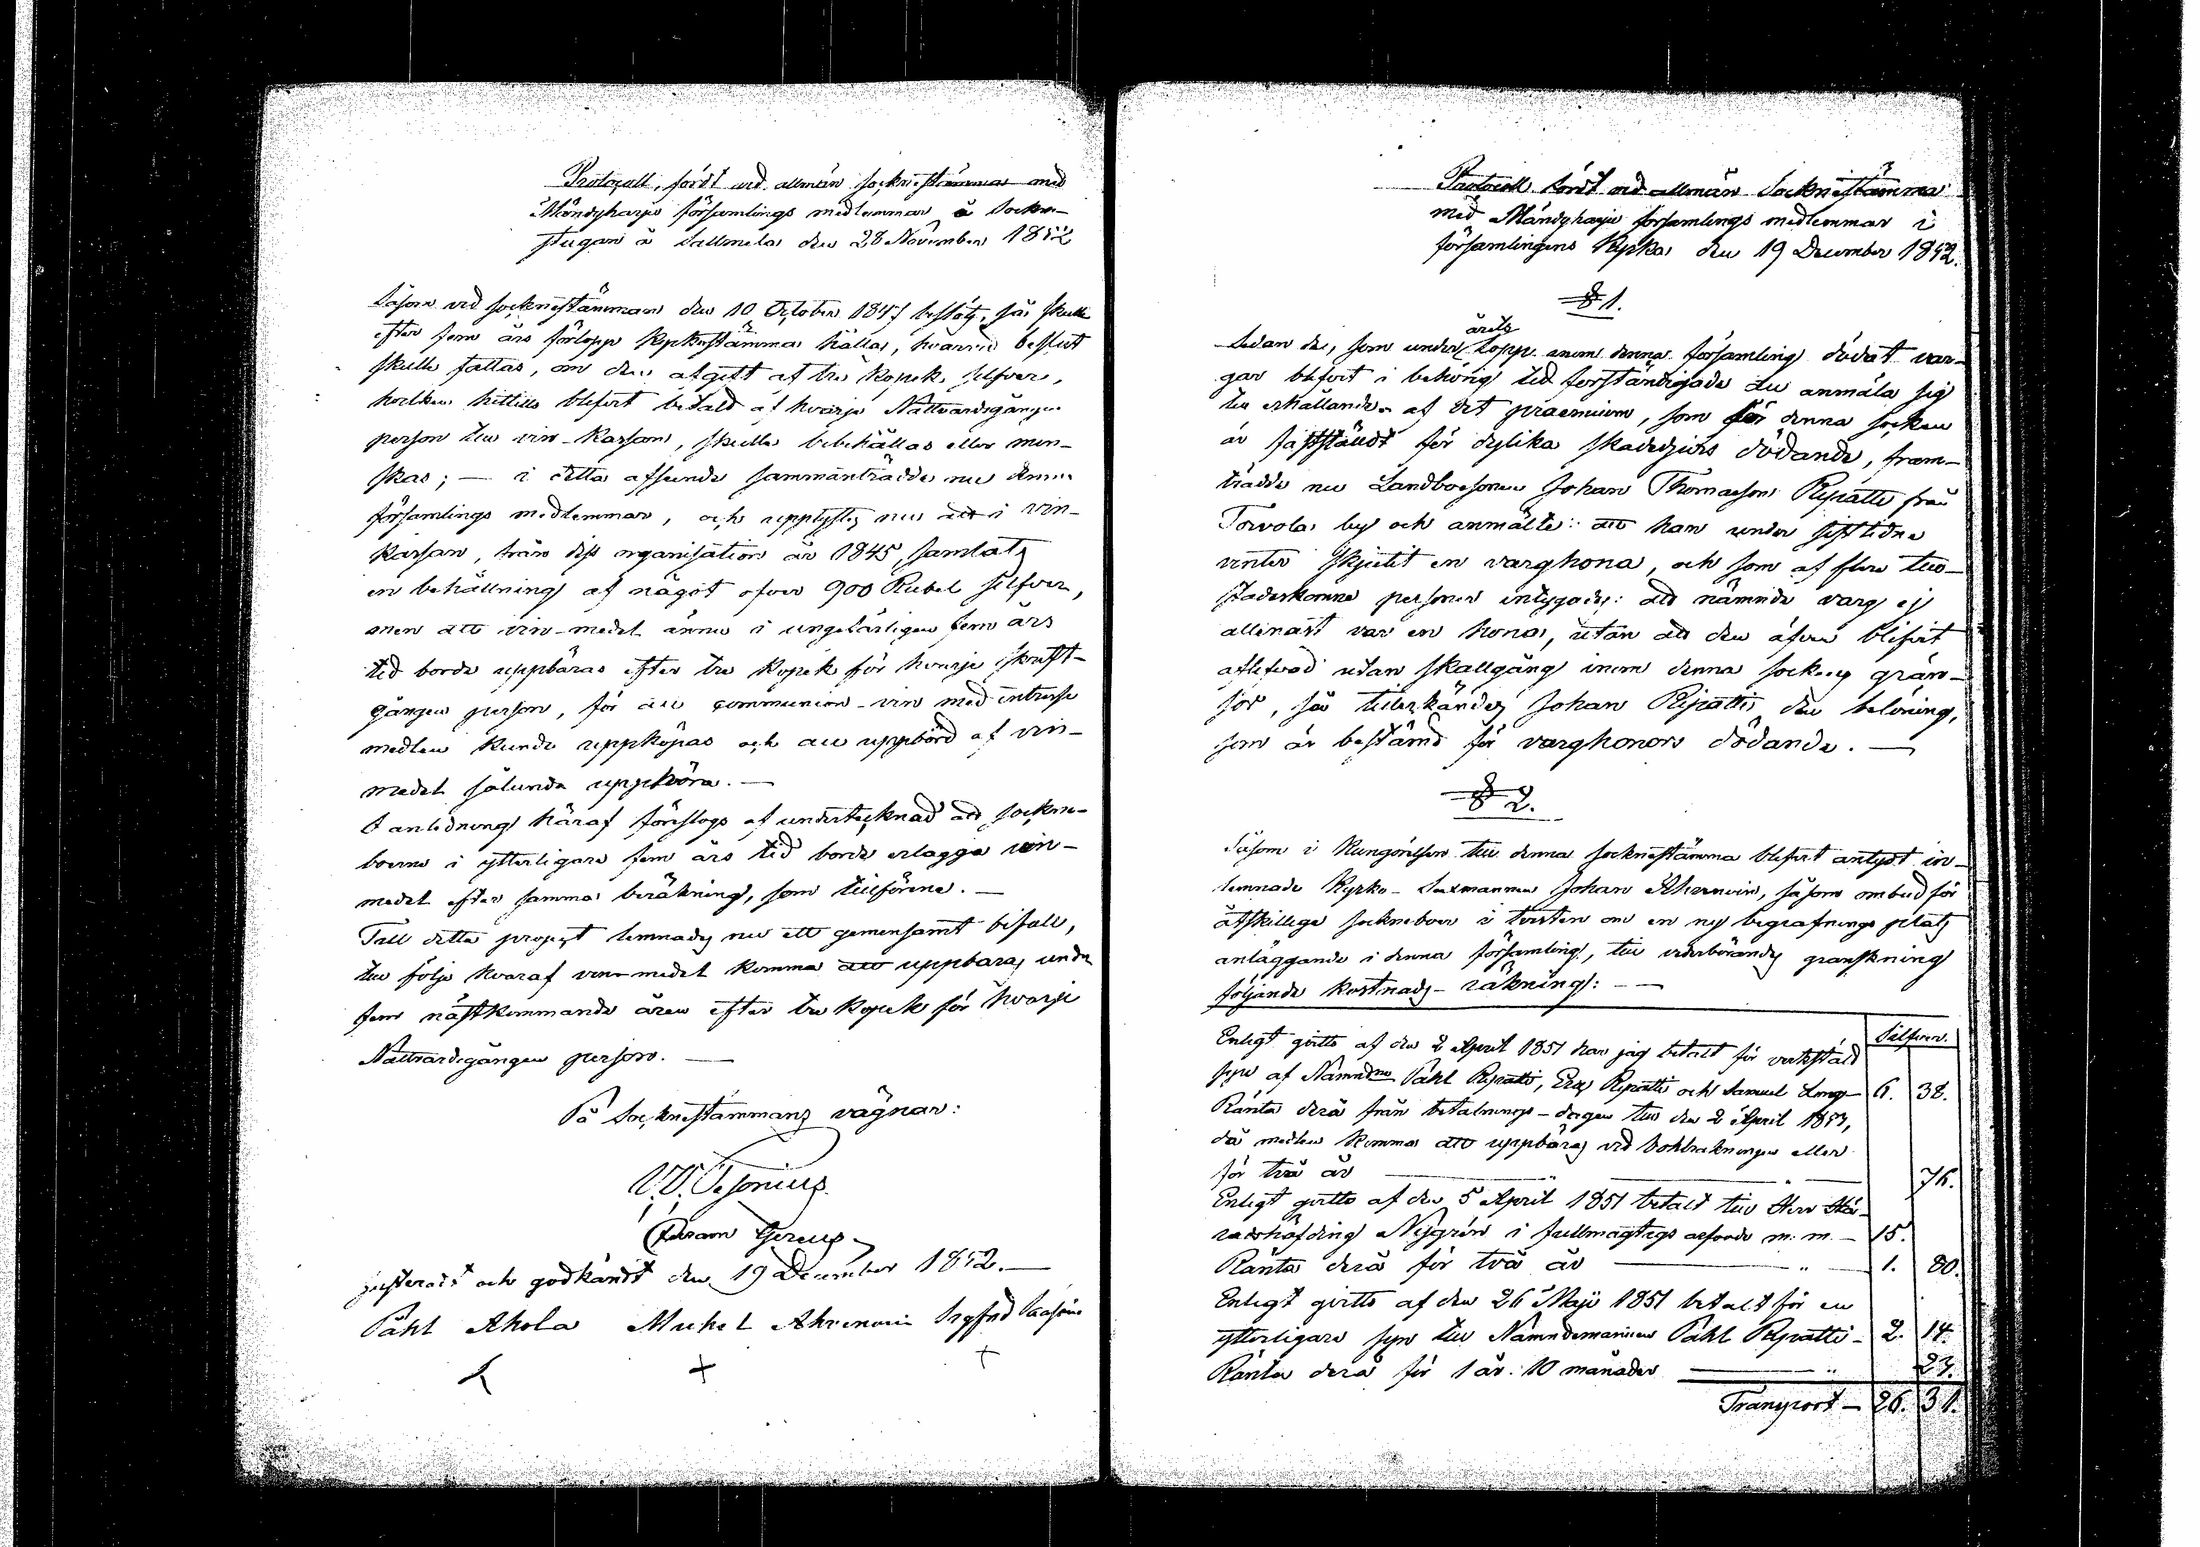 Protocoll, fördt vid allmän sockenstämma med
Mändyharju församlings medlemmar å Sockn-
stugan å Sallmela den 28 November 1852
Såsom vid socknestämman den 10 October 1847 beslöts, så skulle
efter fem års förlopp Kyrkostämma hållas, hvarvid beslut
skulle fattas, om den afgift af tre kopek silfver,
hvilken hittills blifvit betald af hvarje Nattvardsgången
person till vin-kassan, skulle bibehållas eller min-
skas; — i detta afseende sammanträdde nu denna
församlings medlemmar, och upplystes nu att i vin-
kassan, från dess organisation år 1845, samlats
en behållning af något öfver 900 Rubel silfver,
men att vin-medel ännu i ungefärligen fem års
tid borde uppbäras efter tre kopek för hvarje skrift-
gången person, för att communion-vin med intresse
medlen kunde uppköpas och all uppbörd af vin-
medel sålunda upphöra. —
I anledning häraf föreslogs af undertecknad att sockne-
boerne i ytterligare fem års tid borde erlägga vin-
medel efter samma beräkning, som tillförene. —
Till detta project lemnades nu ett gemensamt bifall,
till följe hvaraf vin-medel komma att uppbäras under
fem nästkommande åren efter tre kopek för hvarje
Nattvardsgången person. —
På Socknestämmans vägnar:
justeradt och godkändt den 19 December 1852. —
Påhl Ahola Michel Ahvenain Sigfrid Paasoin
Protocoll fördt vid allmän Socknestämma
med Mändyharju församlings medlemmar i
församlingens Kyrka den 19 December 1852.
§ 1.
årets
Sedan de, som under lopp inom denna församling dödat var-
gar blifvit i behörig tid förständigade att anmäla sig
till erhållande af det præmium, som för denna socken
är fastställdt för dylika skadedjurs dödande, fram-
trädde nu Landbosonen Johan Thomasson Ripatti från
Toivola by och anmälte: att han under sistledne
vinter skjutit en varghona, och som af flere till-
städeskomne personer intygades: att nämnde varg ej
allenast var en hona, utan att den äfven blifvit
aflifvad utan skallgång inom denna sockens grän-
sor, så tillerkändes Johan Ripatti den belöning,
som är bestämd för varghonors dödande. —
§ 2.
Såsom i Kungörelsen till denna socknestämma blifvit antydt in-
lemnade Kyrko-Sexmannen Johan Ahvenain, såsom ombud för
åtskillige sockneboer i tvisten om en ny begrafnings plats
anläggande i denna församling, till vederbörandes granskning
följande kostnads-räkning: —
Silfver.
Enligt qvitto af den 2 April 1851 har jag betalt för verkstäld
syn af Nämndem Påhl Ripatti, Eric Ripatti och Samuel Long — 6. 38.
Ränta derå från betalnings-dagen till den 2 April 1853,
då medlen komma att uppbäras vid bohlräkningen eller
för två år — " — 76.
Enligt qvitto af den 5 April 1851 betalt till Herr Hä-
radshöfding Nygrén i fullmägtigs arfvode m: m. — 15.
Ränta derå för två år — " — 1. 80.
Enligt qvitto af den 26 Maji 1851 betalt för en
ytterligare syn till Nämndemannen Påhl Ripatti — 2. 14.
Ränta derå för 1 år 10 månader — " 23.
Transport — 26. 31.